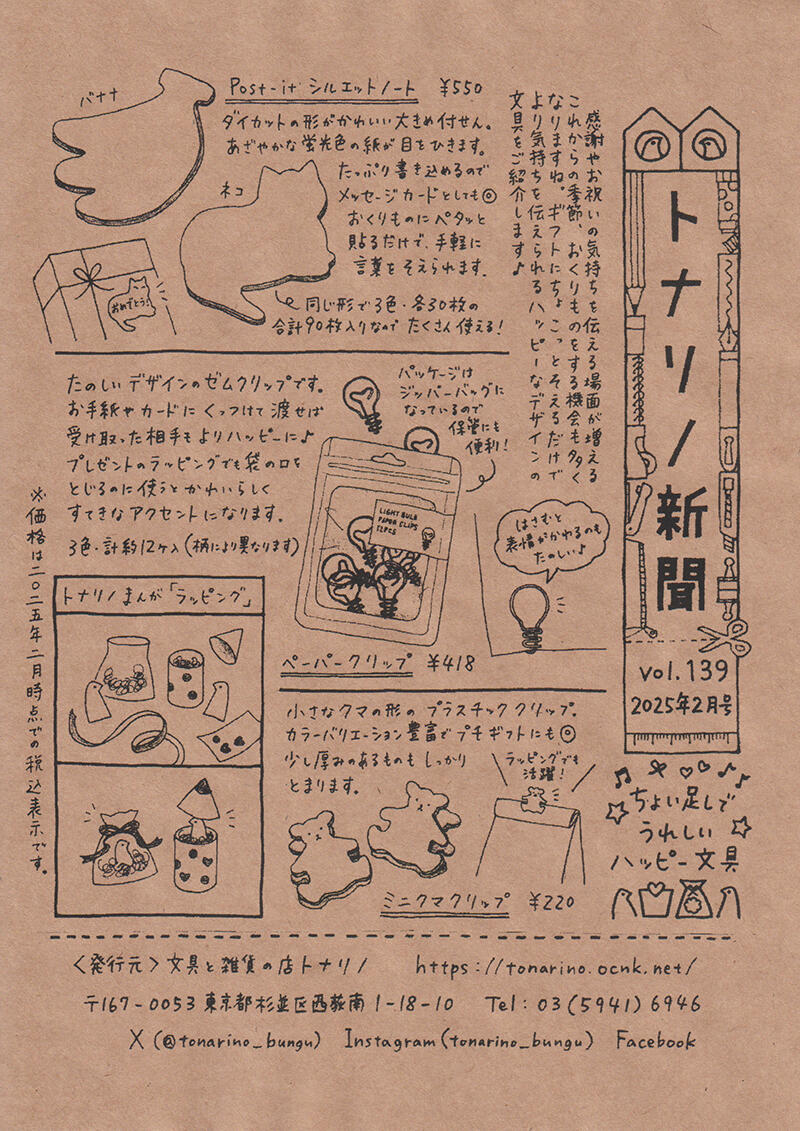 トナリノ新聞
vol.139
2025年2月号
ちょい足しで
うれしい
ハッピー文具
感謝やお祝いの気持ちを伝える場面が増える
これからの季節、おくりものをする機会も多く
なりますね。ギフトにちょこっとそえるだけで
より気持ちを伝えられるハッピーなデザインの
文具をご紹介します♪
Post-it シルエットノート ¥550
バナナ
ダイカットの形がかわいい大きめ付せん。
あざやかな蛍光色の紙が目をひきます。
たっぷり書き込めるので
メッセージカードとしても◎
おくりものにペタッと
貼るだけで、手軽に
言葉をそえられます。
ネコ
おめでとう!
同じ形で3色・各30枚の
合計90枚入りなので たくさん使える!
たのしいデザインのゼムクリップです。
お手紙やカードにくっつけて渡せば
受け取った相手もよりハッピーに♪
プレゼントのラッピングでも袋の口を
とじるのに使うとかわいらしく
すてきなアクセントになります。
3色・計約12ヶ入(柄により異なります)
パッケージは
ジッパーバッグに
なっているので
保管にも
便利!
LIGHT BULB
PAPER CLIPS
12PCS
はさむと
表情がかわるのも
たのしい♪
ペーパークリップ ¥418
トナリノまんが「ラッピング」
小さなクマの形のプラスチッククリップ。
カラーバリエーション豊富でプチギフトにも◎
少し厚みのあるものもしっかり
とまります。
ラッピングでも
活躍!
ミニクマクリップ ¥220
※価格は二〇二五年二月時点での税込表示です。
〈発行元〉文具と雑貨の店トナリノ https://tonarino.ocnk.net/
〒167-0053 東京都杉並区西荻南1-18-10 Tel:03(5941)6946
X (@tonarino_bungu) Instagram(tonarino_bungu) Facebook